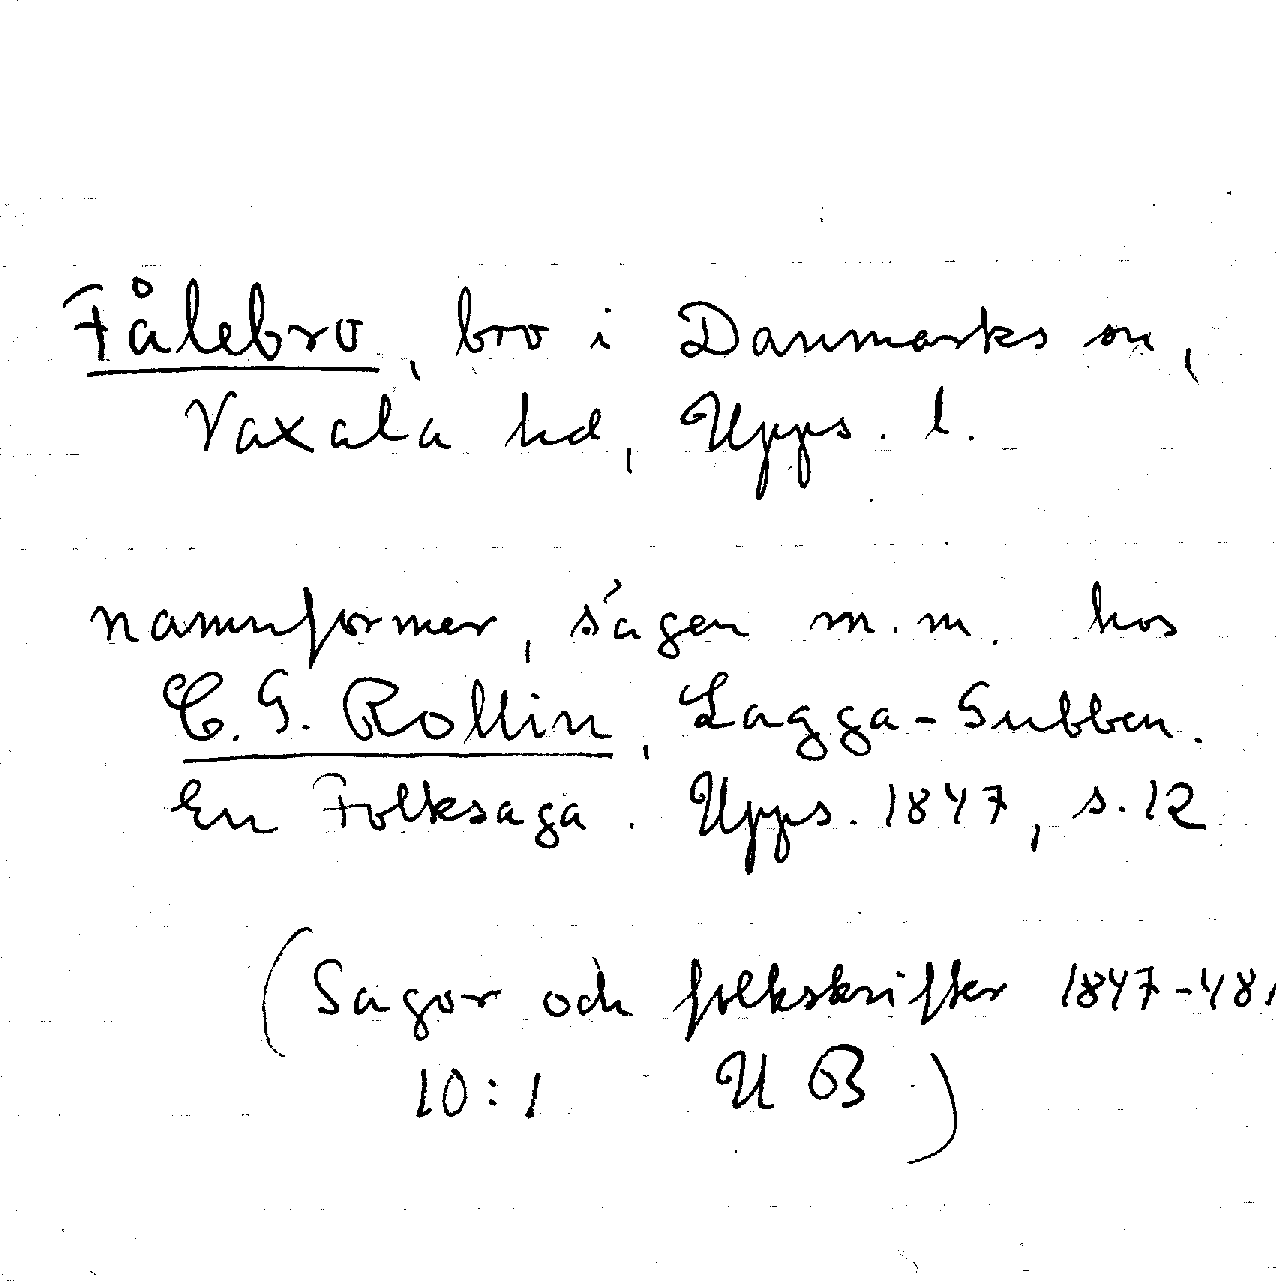 Fålebro, bro i Danmarks sn,
Vaxala hd, Upps. l.
namnformer, sägen m.m. hos
C. G. Rollin, Lagga-Gubben.
En Folksaga. Upps. 1847, s. 12
(Sagor och folkskrifter 1847-48,
10:1 UB)